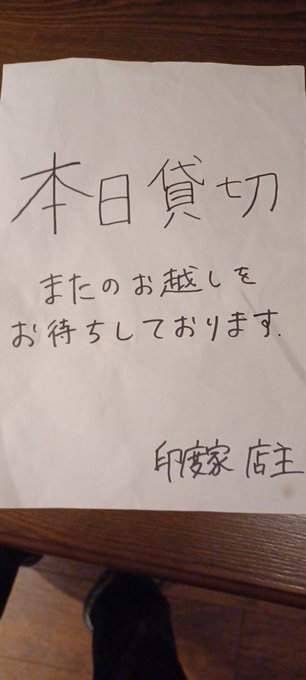 本日貸切
またのお越しを
お待ちしております.
印度家 店主